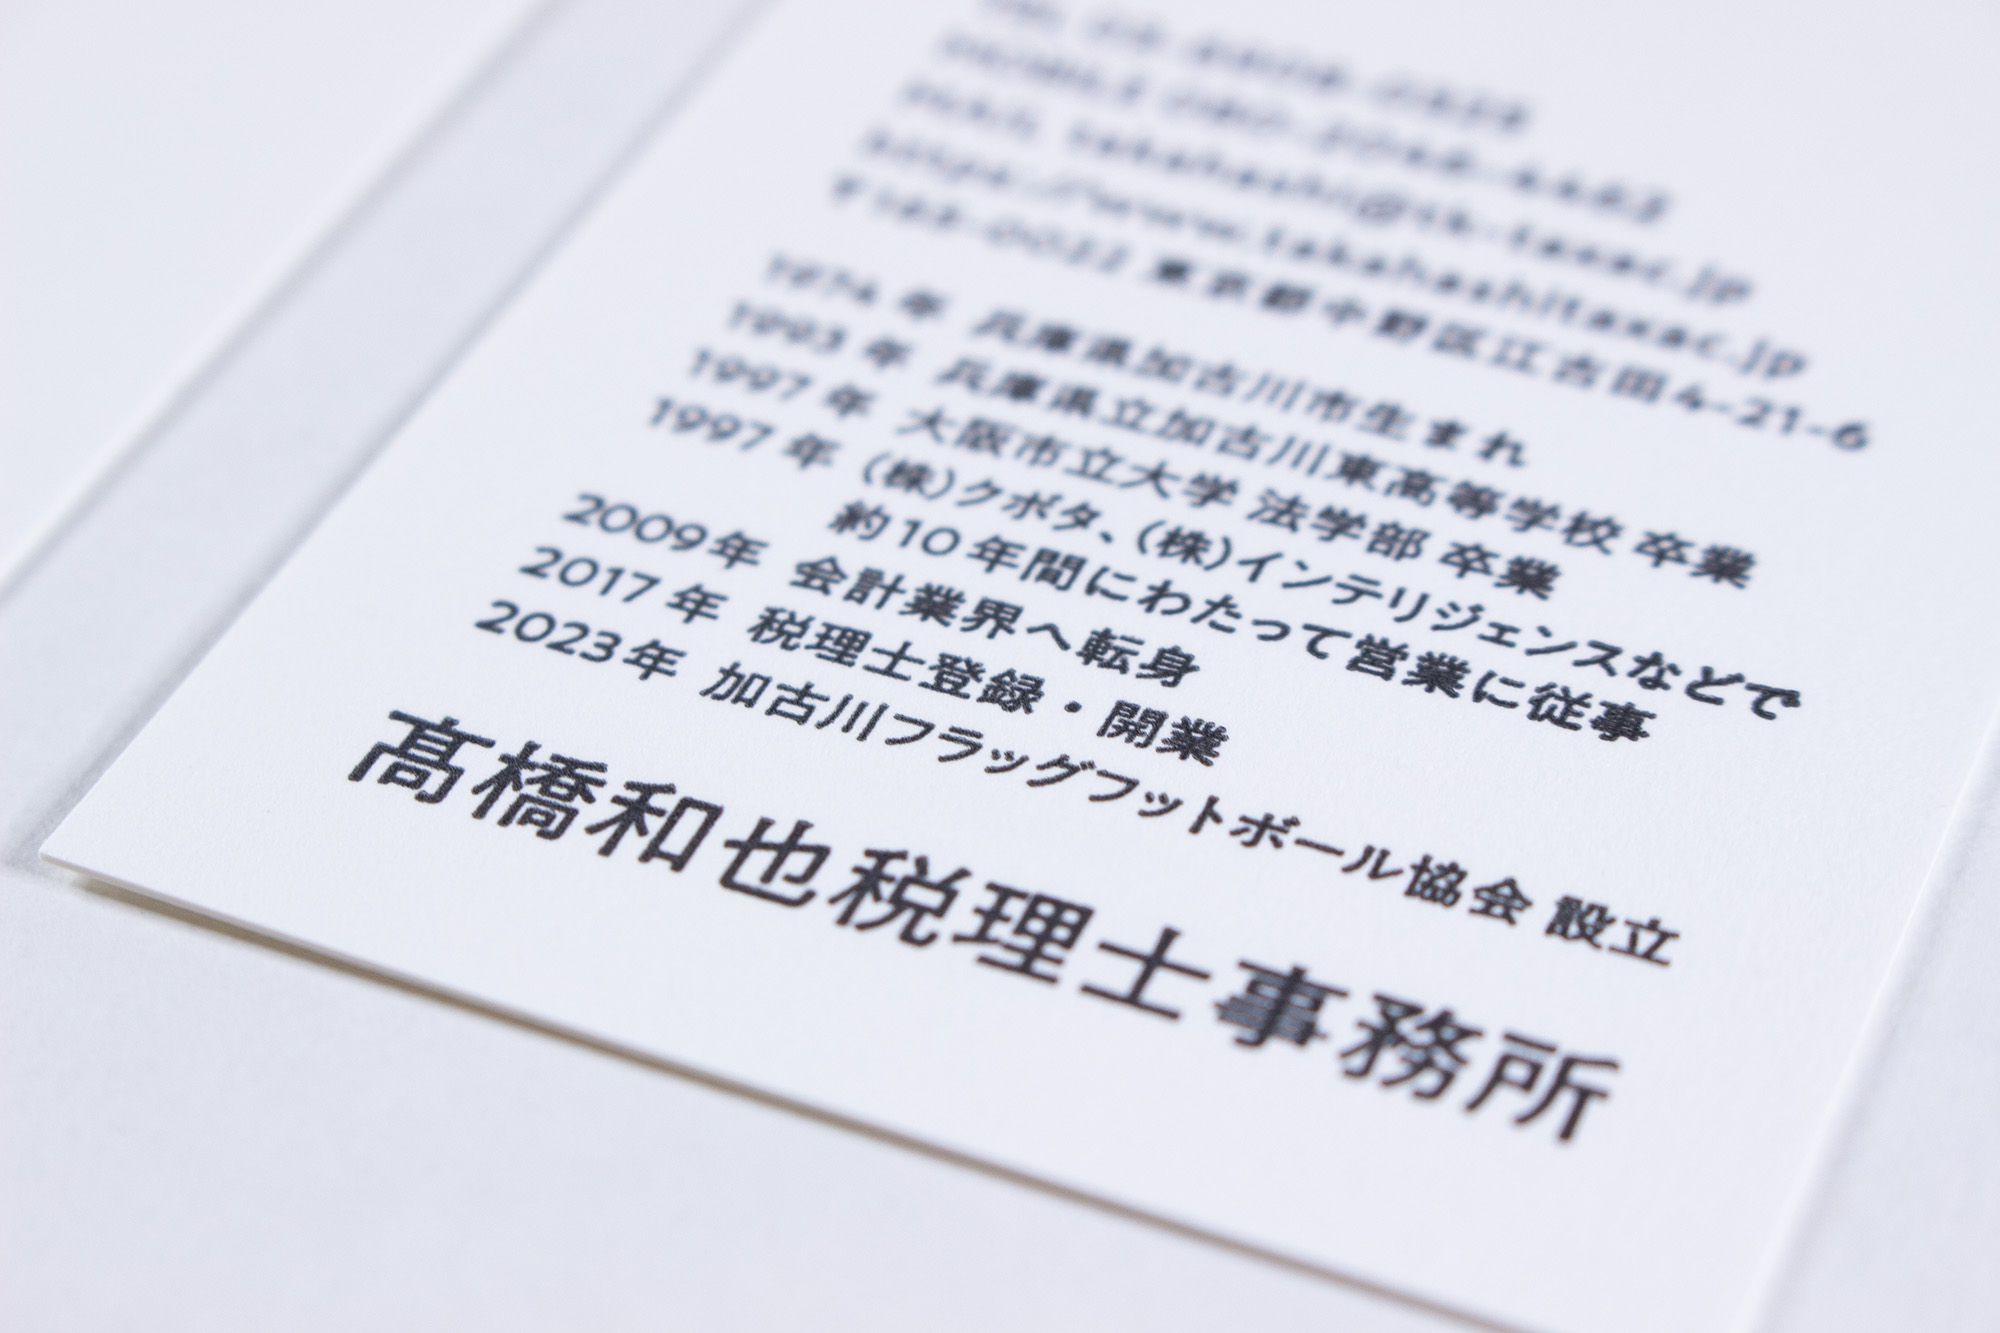 takahashi@tk-taxac.jp
https://www.takahashitaxac.jp
〒165-0022 東京都中野区江古田4-21-6
1974年 兵庫県加古川市生まれ
1993年 兵庫県立加古川東高等学校 卒業
1997年 大阪市立大学 法学部 卒業
1997年 (株)クボタ、(株)インテリジェンスなどで
約10年間にわたって営業に従事
2009年 会計業界へ転身
2017年 税理士登録・開業
2023年 加古川フラッグフットボール協会 設立
髙橋和也税理士事務所